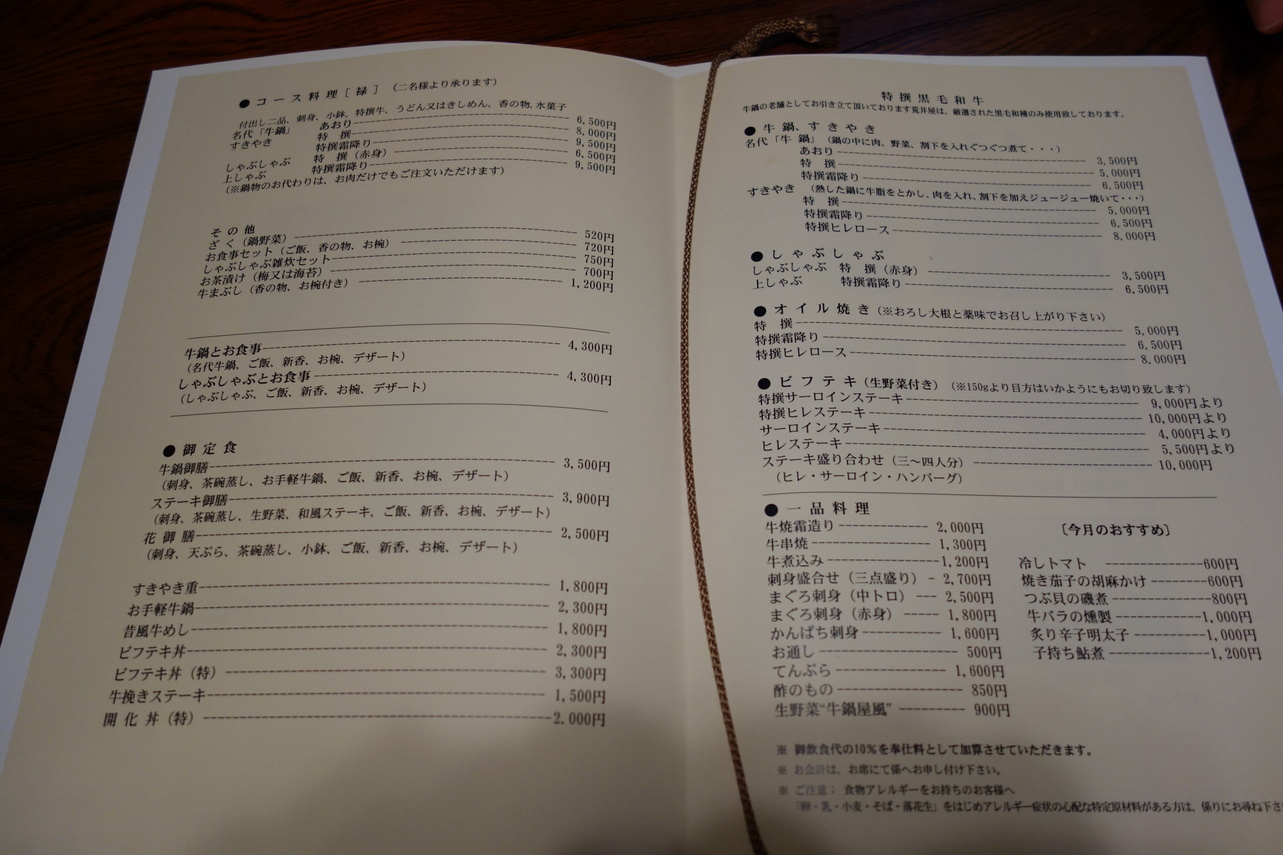 ● コース料理［禄］（二名様より承ります）
付出し二品、刺身、小鉢、特撰牛、うどん又はきしめん、香の物,水菓子
名代「牛鍋」 あおり 6,500円
すきやき 特 撰 8,000円
特撰霜降り 9,500円
しゃぶしゃぶ 特 撰（赤身） 6,500円
上しゃぶ 特撰霜降り 9,500円
（※鍋物のお代わりは、お肉だけでもご注文いただけます）
その他
ざく（鍋野菜） 520円
お食事セット（ご飯、香の物、お椀） 720円
しゃぶしゃぶ雑炊セット 750円
お茶漬け（梅又は海苔） 700円
牛まぶし（香の物、お椀付き） 1,200円
牛鍋とお食事 4,300円
（名代牛鍋、ご飯、新香、お椀、デザート）
しゃぶしゃぶとお食事 4,300円
（しゃぶしゃぶ、ご飯、新香、お椀、デザート）
● 御定食
牛鍋御膳 3,500円
（刺身、茶碗蒸し、お手軽牛鍋、ご飯、新香、お椀、デザート）
ステーキ御膳 3,900円
（刺身、茶碗蒸し、生野菜、和風ステーキ、ご飯、新香、お椀、デザート）
花御膳 2,500円
（刺身、天ぷら、茶碗蒸し、小鉢、ご飯、新香、お椀、デザート）
すきやき重 1,800円
お手軽牛鍋 2,300円
昔風牛めし 1,800円
ビフテキ丼 2,300円
ビフテキ丼（特） 3,300円
牛挽きステーキ 1,500円
開化丼（特） 2,000円
特撰黒毛和牛
牛鍋の老舗としてお引き立て頂いております荒井屋は、厳選された黒毛和種のみ使用致しております。
● 牛鍋、すきやき
名代「牛鍋」（鍋の中に肉、野菜、割下を入れぐつぐつ煮て・・・）
あおり 3,500円
特 撰 5,000円
特撰霜降り 6,500円
すきやき （熱した鍋に牛脂をとかし、肉を入れ、割下を加えジュージュー焼いて・・・）
特 撰 5,000円
特撰霜降り 6,500円
特撰ヒレロース 8,000円
● しゃぶしゃぶ
しゃぶしゃぶ 特 撰（赤身） 3,500円
上しゃぶ 特撰霜降り 6,500円
● オイル焼き（※おろし大根と薬味でお召し上がり下さい）
特 撰 5,000円
特撰霜降り 6,500円
特撰ヒレロース 8,000円
● ビフテキ（生野菜付き）（※150gより目方はいかようにもお切り致します）
特撰サーロインステーキ 9,000円より
特撰ヒレステーキ 10,000円より
サーロインステーキ 4,000円より
ヒレステーキ 5,500円より
ステーキ盛り合わせ（三〜四人分） 10,000円
（ヒレ・サーロイン・ハンバーグ）
● 一品料理
牛焼霜造り 2,000円
牛串焼 1,300円
牛煮込み 1,200円
刺身盛合せ（三点盛り） 2,700円
まぐろ刺身（中トロ） 2,500円
まぐろ刺身（赤身） 1,800円
かんぱち刺身 1,600円
お通し 500円
てんぷら 1,600円
酢のもの 850円
生野菜“牛鍋屋風” 900円
〔今月のおすすめ〕
冷しトマト 600円
焼き茄子の胡麻かけ 600円
つぶ貝の磯煮 800円
牛バラの燻製 1,000円
炙り辛子明太子 1,000円
子持ち鮎煮 1,200円
※ 御飲食代の10%を奉仕料として加算させていただきます。
※ お会計は、お席にて係へお申し付け下さい。
※ ご注意； 食物アレルギーをお持ちのお客様へ
「卵・乳・小麦・そば・落花生」をはじめアレルギー症状の心配な特定原材料がある方は、係りにお尋ね下さ